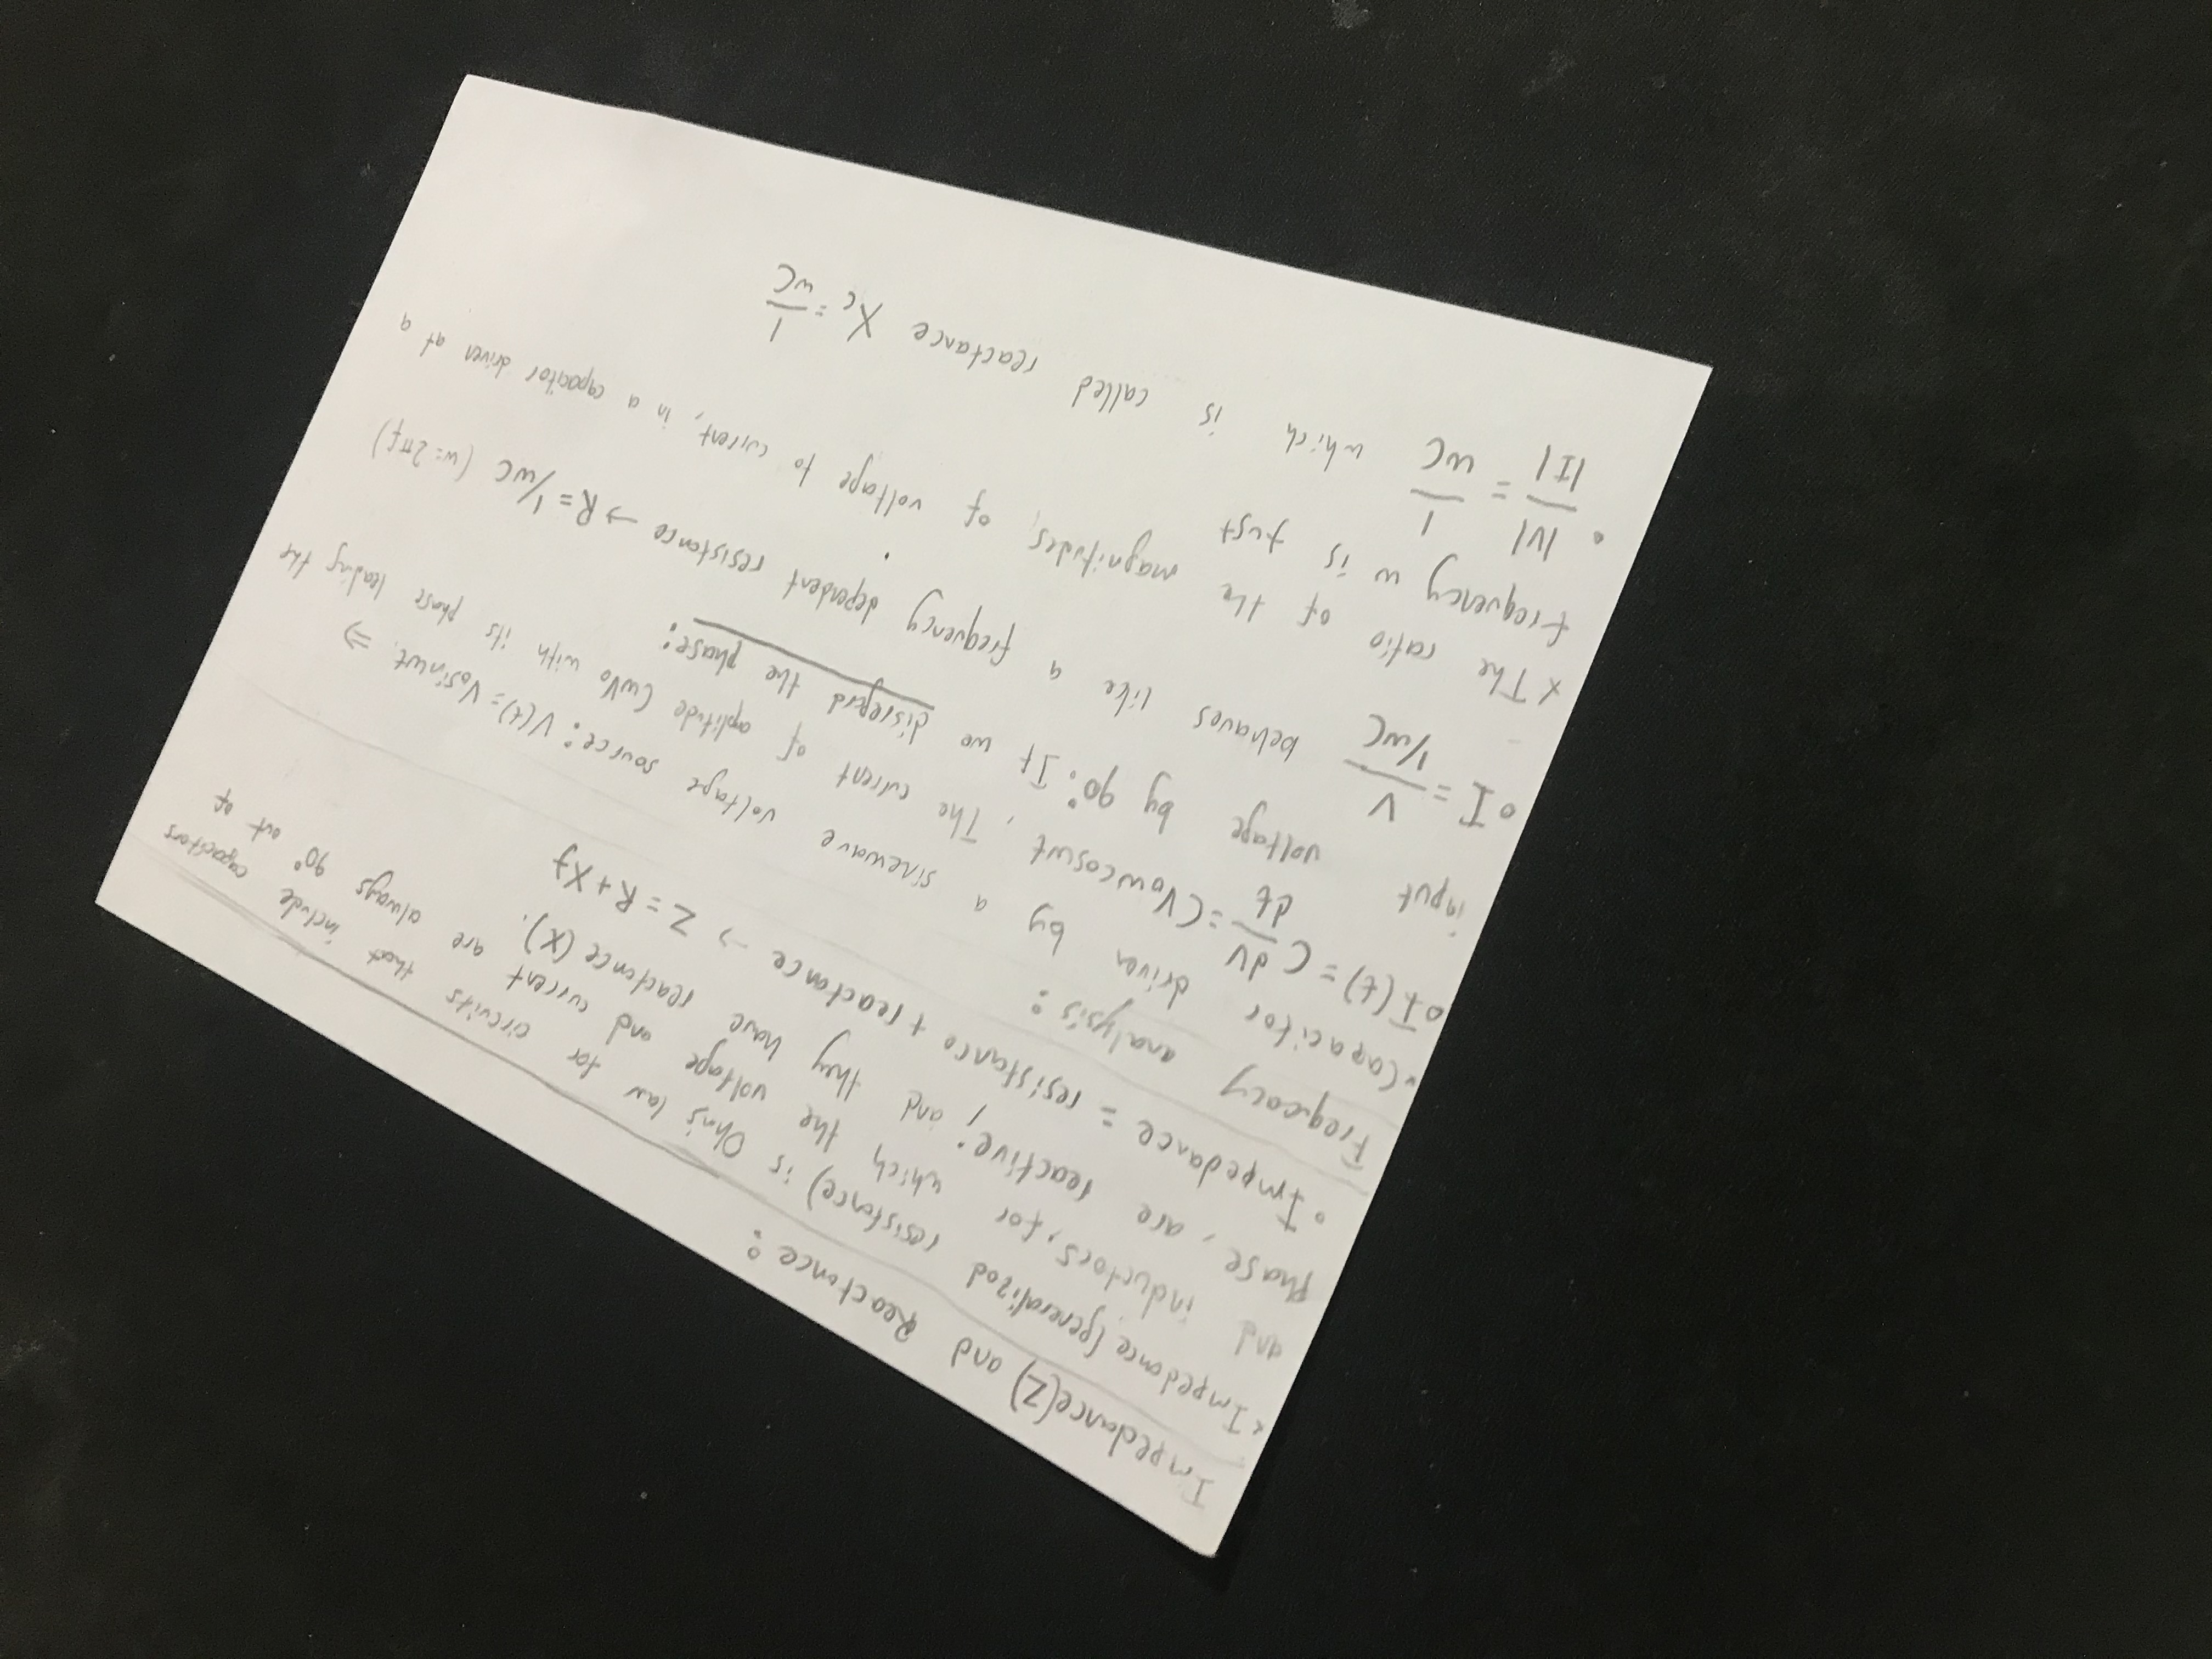 Impedance(Z) and Reactance:
* Impedance (generalized resistance) is Ohm's law for circuits that include capacitors
and inductors, for which the voltage and current are always 90° out of
phase, are reactive; and they have reactance (X).
° Impedance = resistance + reactance → Z = R + Xj
Frequency analysis:
* Capacitor driven by a sinewave voltage source: V(t) = V₀sinwt. ⇒
° I(t) = C dV/dt = CV₀wcoswt, The current of aplitude CwV₀ with its phase leading the
input voltage by 90°. If we disregard the phase:
° I = V/(1/wC) behaves like a frequency dependent resistance → R = 1/wC (w = 2πf)
* The ratio of the magnitudes of voltage to current, in a capacitor driven at a
frequency w is just
° |V|/|I| = 1/wC which is called reactance Xc = 1/wC